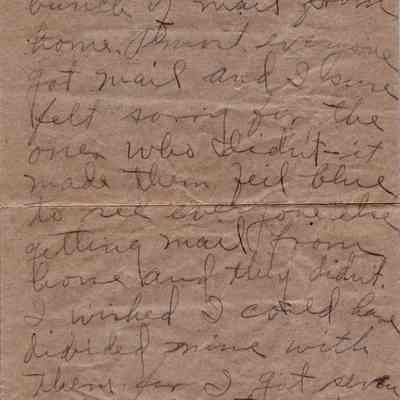 bunch of mail from
home. Almost everyone
got mail and I sure
felt sorry for the
ones who didn't it
made them feel blue
to see everyone else
getting mail from
home and they didn't.
I wished I could have
divided mine with
them for I got seven